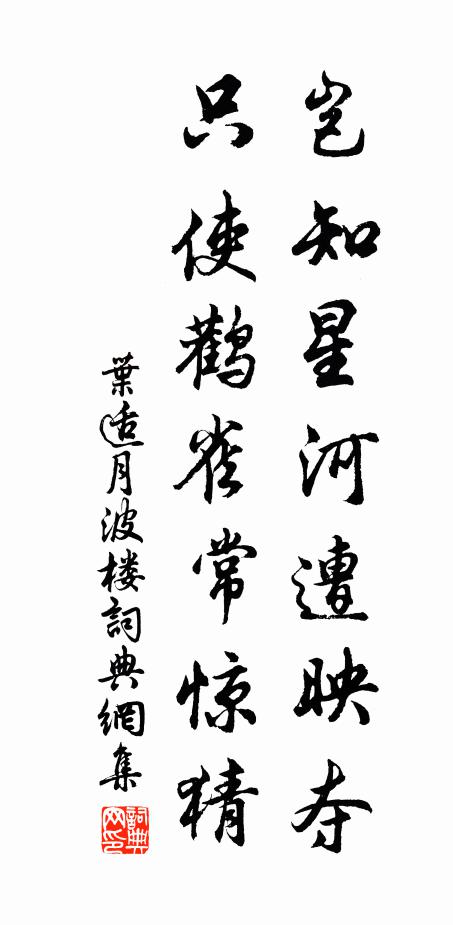 岂知星河遭映夺
只使鹳雀常惊猜
葉适月波楼詞典網集
詞典网印